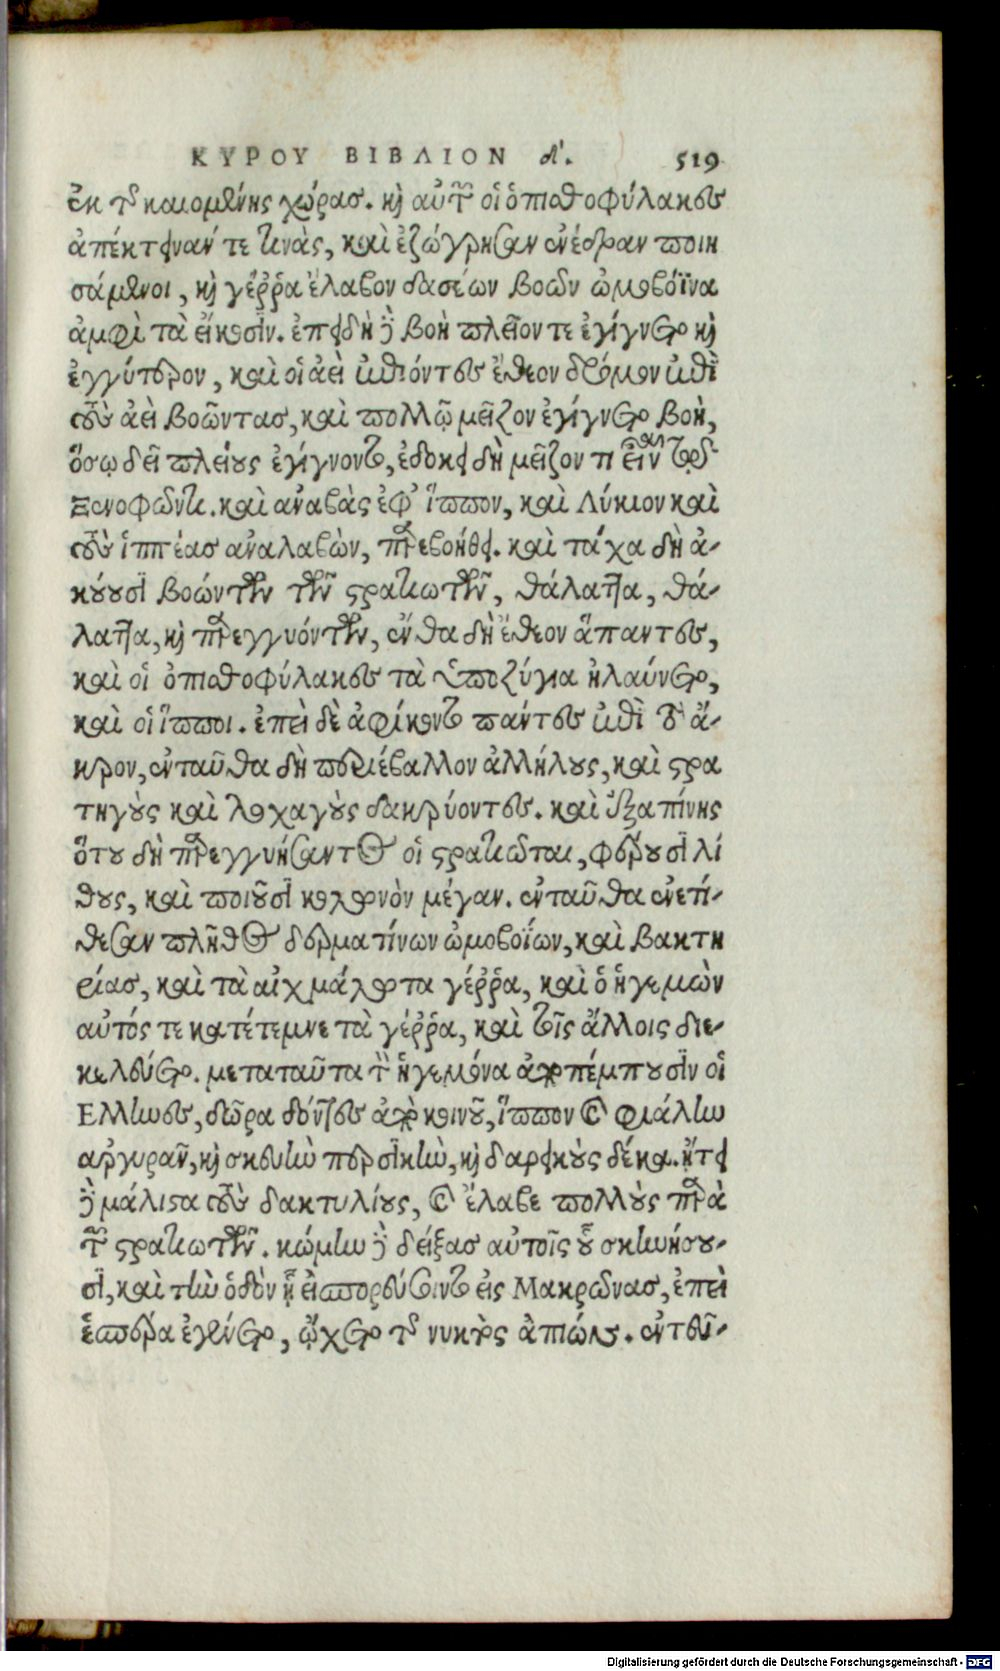 ΚΥΡΟΥ ΒΙΒΛΙΟΝ δ'. 519
ἐκ τῆς καιομένης χώρας. καὶ αὐτῶν οἱ ὀπισθοφύλακες
ἀπέκτεινάν τε τινὰς, καὶ ἐζώγρησαν ἐνέδραν ποιη
σάμενοι, καὶ γέῤῥα ἔλαβον δασέων βοῶν ὠμοβόϊνα
ἀμφὶ τὰ εἴκοσιν. ἐπειδὴ δὲ βοὴ πλεῖόν τε ἐγίγνετο καὶ
ἐγγύτερον, καὶ οἱ ἀεὶ ἐπιόντες ἔθεον δρόμον ἐπὶ
τοὺς ἀεὶ βοῶντας, καὶ πολλῷ μεῖζον ἐγίγνετο βοὴ,
ὅσῳ δεῖ πλείους ἐγίγνοντο, ἐδόκει δὴ μεῖζόν τι εἶναι τῷ
Ξενοφῶντι. καὶ ἀναβὰς ἐφ' ἵππον, καὶ Λύκιον καὶ
τοὺς ἱππέας ἀναλαβὼν, παρεβοήθει. καὶ τάχα δὴ ἀ-
κούουσι βοώντων τῶν στρατιωτῶν, θάλαττα, θά-
λαττα, καὶ παρεγγυόντων, ἔνθα δὴ ἔθεον ἅπαντες,
καὶ οἱ ὀπισθοφύλακες τὰ ὑποζύγια ἠλαύνετο,
καὶ οἱ ἵπποι. ἐπεὶ δὲ ἀφίκοντο πάντες ἐπὶ τὸ ἄ-
κρον, ἐνταῦθα δὴ περιέβαλλον ἀλλήλους, καὶ στρα
τηγοὺς καὶ λοχαγοὺς δακρύοντες. καὶ ἐξαπίνης
ὅτου δὴ παρεγγυήσαντος οἱ στρατιῶται, φέρουσι λί
θους, καὶ ποιοῦσι κολωνὸν μέγαν. ἐνταῦθα ἀνετί-
θεσαν πλῆθος δερματίνων ὠμοβοΐων, καὶ βακτη
ρίας, καὶ τὰ αἰχμάλωτα γέῤῥα, καὶ ὁ ἡγεμὼν
αὐτός τε κατέτεμνε τὰ γέῤῥα, καὶ τοῖς ἄλλοις διε-
κελεύετο. μεταταῦτα τὸν ἡγεμόνα ἀποπέμπουσιν οἱ
Ἕλληνες, δῶρα δόντες ἀπὸ κοινοῦ, ἵππον καὶ φιάλην
ἀργυρᾶν, καὶ σκευὴν περσικὴν, καὶ δαρεικοὺς δέκα. ᾔτει
δὲ μάλιστα τοὺς δακτυλίους, καὶ ἔλαβε πολλοὺς παρὰ
τῶν στρατιωτῶν. κώμην δὲ δείξας αὐτοῖς οὗ σκηνήσου-
σι, καὶ τὴν ὁδὸν ᾗ εἰσπορεύσονται εἰς Μάκρωνας, ἐπεὶ
ἑσπέρα ἐγένετο, ᾤχετο τῆς νυκτὸς ἀπιών. ἐντεῦ-
Digitalisierung gefördert durch die Deutsche Forschungsgemeinschaft - DFG